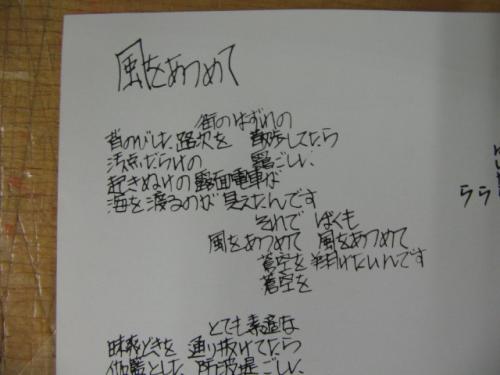 風をあつめて
街のはずれの
背のびした路次を 散歩してたら
汚点だらけの 靄ごしに
起きぬけの露面電車が
海を渡るのが 見えたんです
それで ぼくも
風をあつめて 風をあつめて
蒼空を翔けたいんです
蒼空を
とても素適な
昧爽どきを 通り抜けてたら
伽藍とした 防波堤ごしに
らら